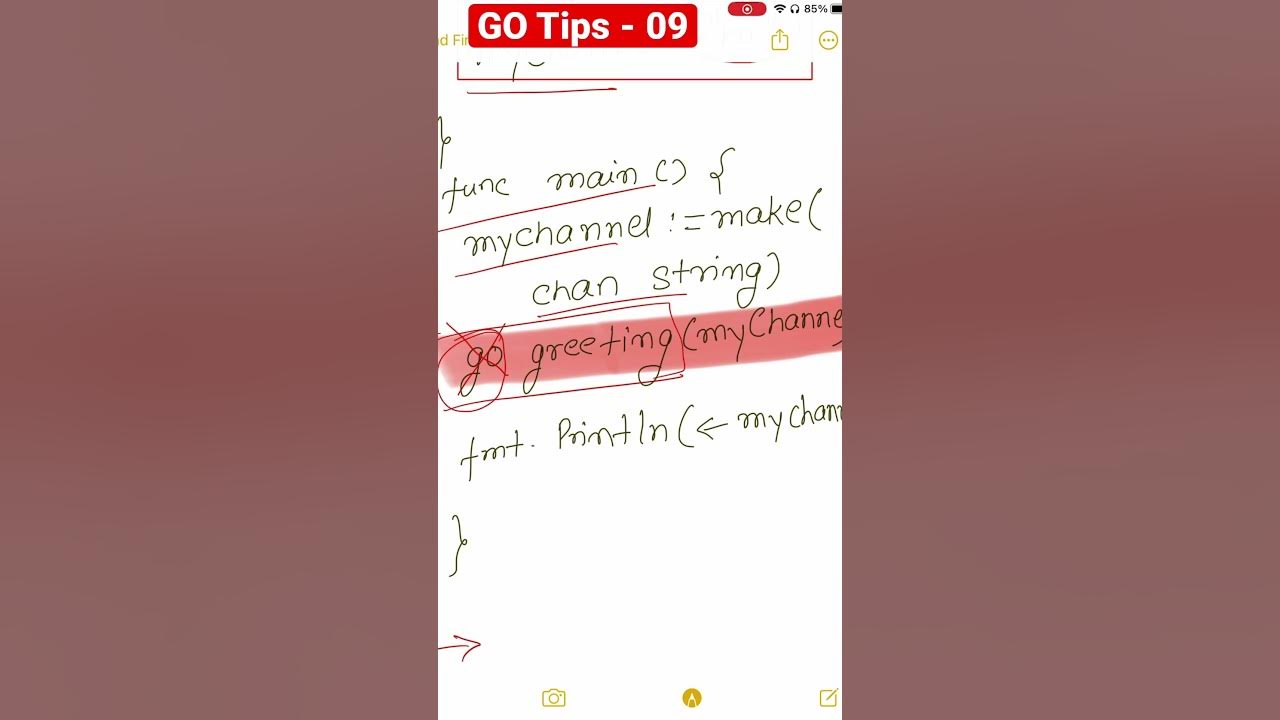 GO Tips - 09
85%
}
func main() {
mychannel := make(
chan string)
go greeting(myChanne
fmt. Println(← mychann
}